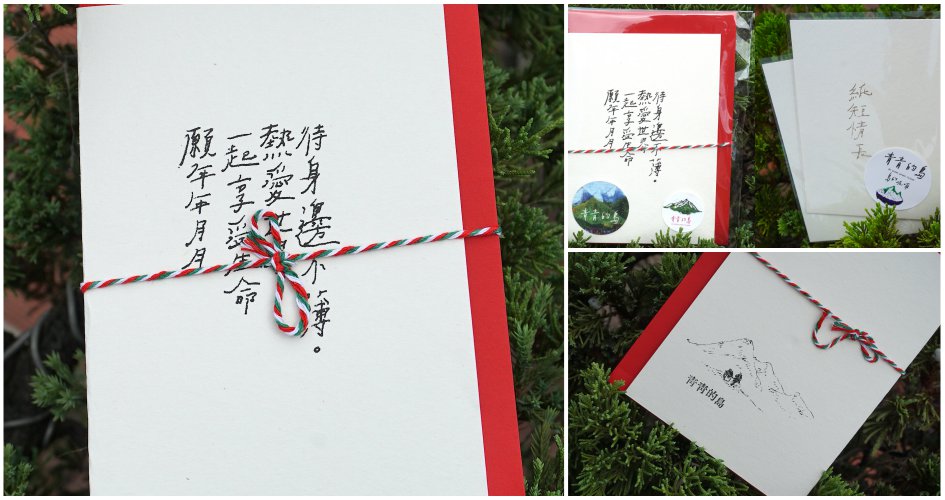 願年年月月
一起享受生命
熱愛世
待身邊不薄。
願年年月月
一起享受生命
熱愛世
待身邊不薄。
青青的島
青青的島
紙短情長
青青的島
青青的島